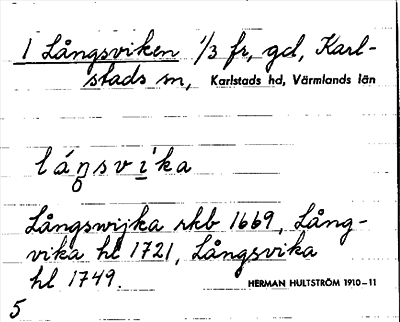 1 Långsviken 1/3 fr, gd, Karl-
stads sn, Karlstads hd, Värmlands län
låŋsvi̱ka
Långswijka rkb 1669, Lång-
vika hl 1721, Långsvika
hl 1749.
HERMAN HULTSTRÖM 1910-11
5